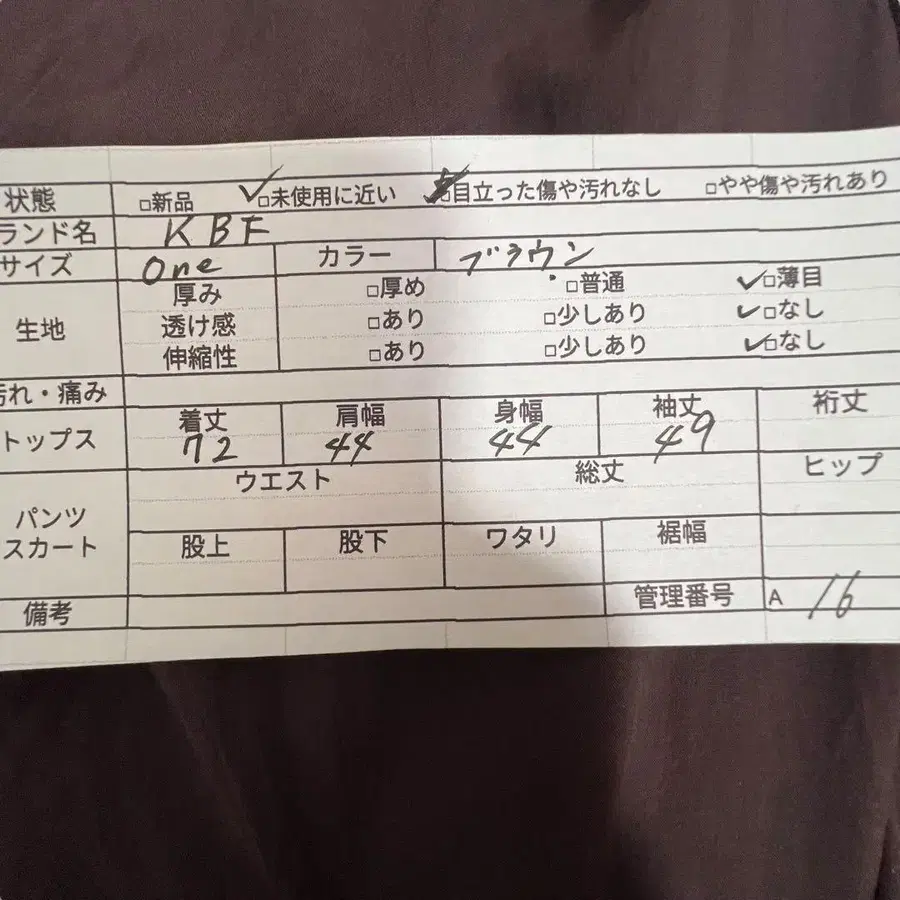 状態 □新品 ✓□未使用に近い □目立った傷や汚れなし □やや傷や汚れあり
ランド名 KBF
サイズ One カラー ブラウン
生地 厚み □厚め □普通 ✓□薄目
透け感 □あり □少しあり ✓□なし
伸縮性 □あり □少しあり ✓□なし
汚れ・痛み
トップス 着丈 肩幅 身幅 袖丈 裄丈
72 44 44 49
パンツ スカート ウエスト 総丈 ヒップ
股上 股下 ワタリ 裾幅
備考 管理番号 A 16